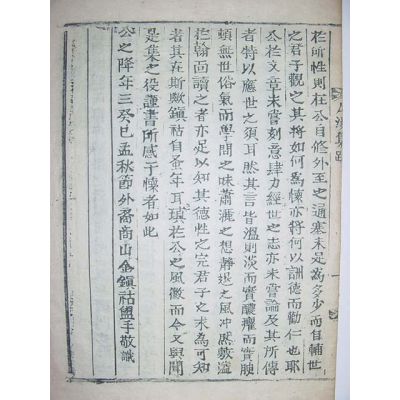 於所性則在公自修外至之通塞未是為多少而自輔世
之君子觀之其將如何為懷亦將何以訓德而勸仁也耶
公於文章未嘗刻意肆力經世之志亦未嘗論及其所傳
者特以應世之須耳然其言皆溫則淡而實醲癯而實腴
頓無世俗氣而學問之味蕭灑之想靜退之風冲然敷溢
於翰面讀之者亦足以知其德性之完君子之末為可知
者其在斯歟鎭祜自蚤年耳琅於公之風徽而今又與聞
是集之役謹書所感于懷者如此
公之降年三癸巳孟秋節外裔商山金鎭祜盥手敬識